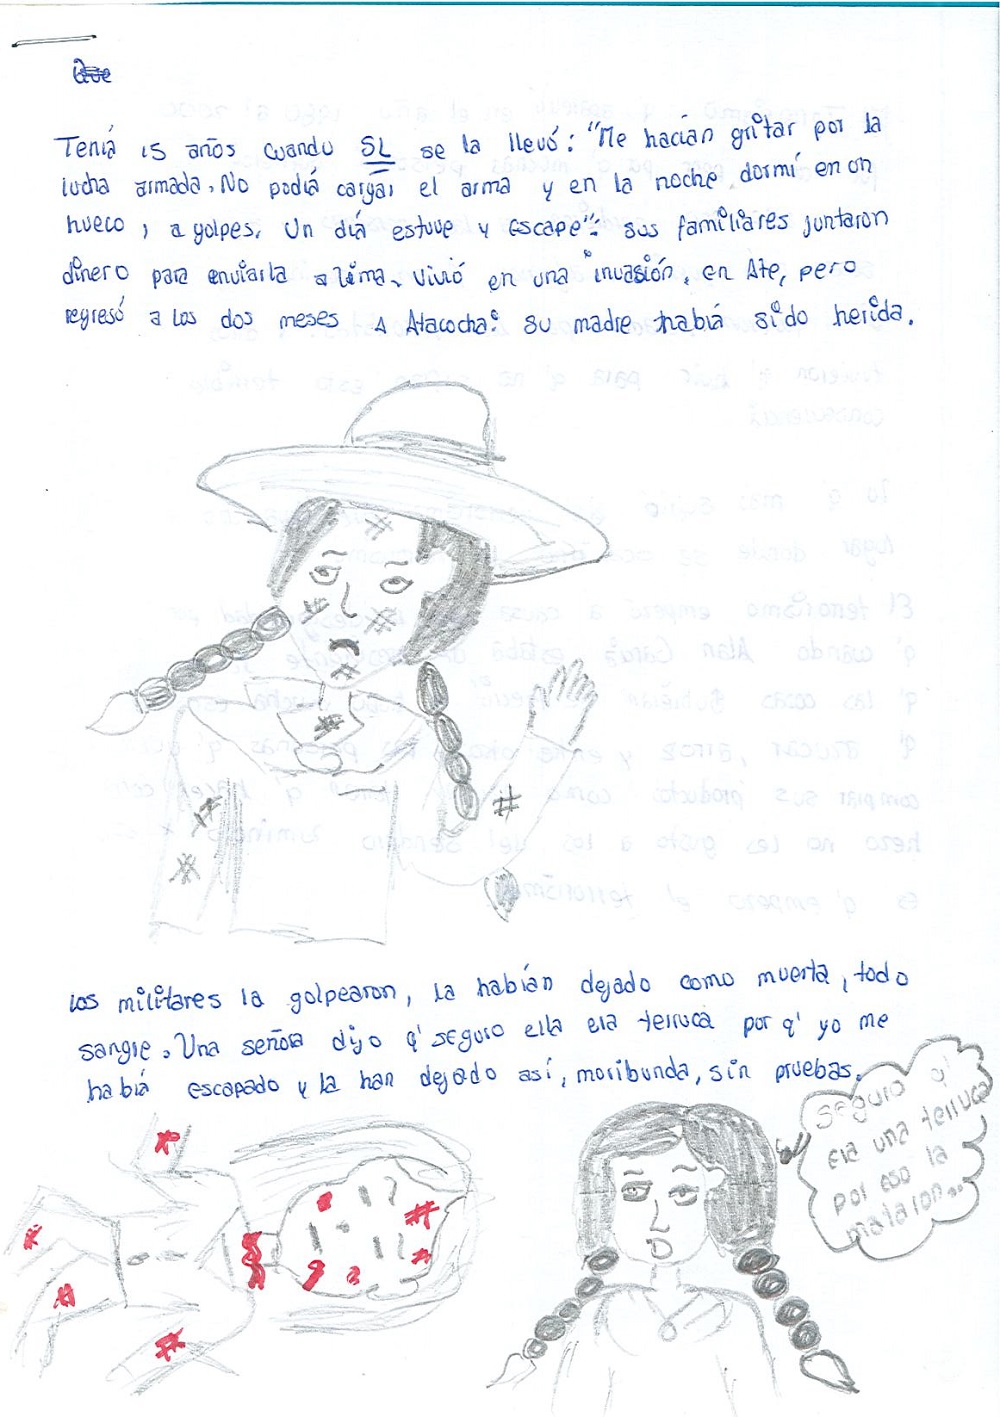 Que
Teniá 15 años cuando SL se la llevó: "Me hacían gritar por la
lucha armada. No podiá cargar el arma y en la noche dormí en un
hueco, a golpes. Un diá estuve y escape": sus familiares juntaron
dinero para enviarla a lima. vivió en una invasión, en Ate, pero
regresó a los dos meses A Atacocha: su madre habiá sido herida.
los militares la golpearon, la habían dejado como muerta, todo
sangre. Una señora dijo q' seguro ella era terruca por q' yo me
habiá escapado y la han dejado así, moribunda, sin pruebas.
seguro q'
era una terruca
por eso la
mataron...